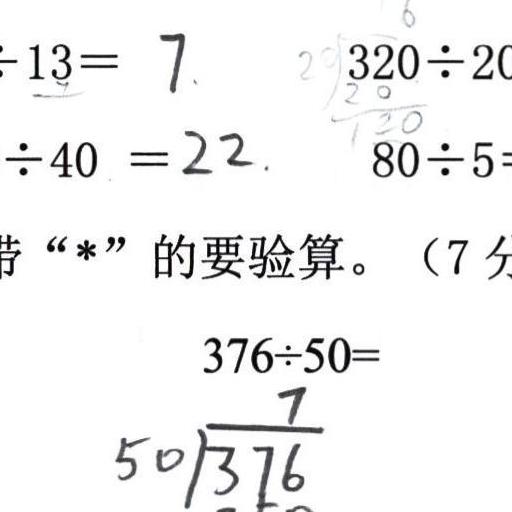 ÷13= 7.
6
20 320÷20
20
120
÷40 =22.
80÷5=
带“*”的要验算。（7分
376÷50=
7
50 376